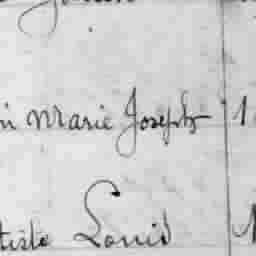 ni Marie Joseph 1
tiste Louis